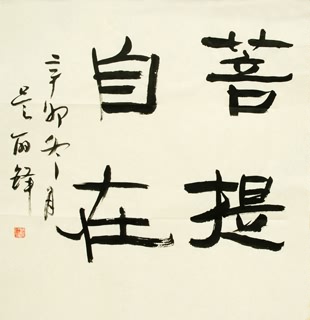 菩提
自在
辛卯冬月